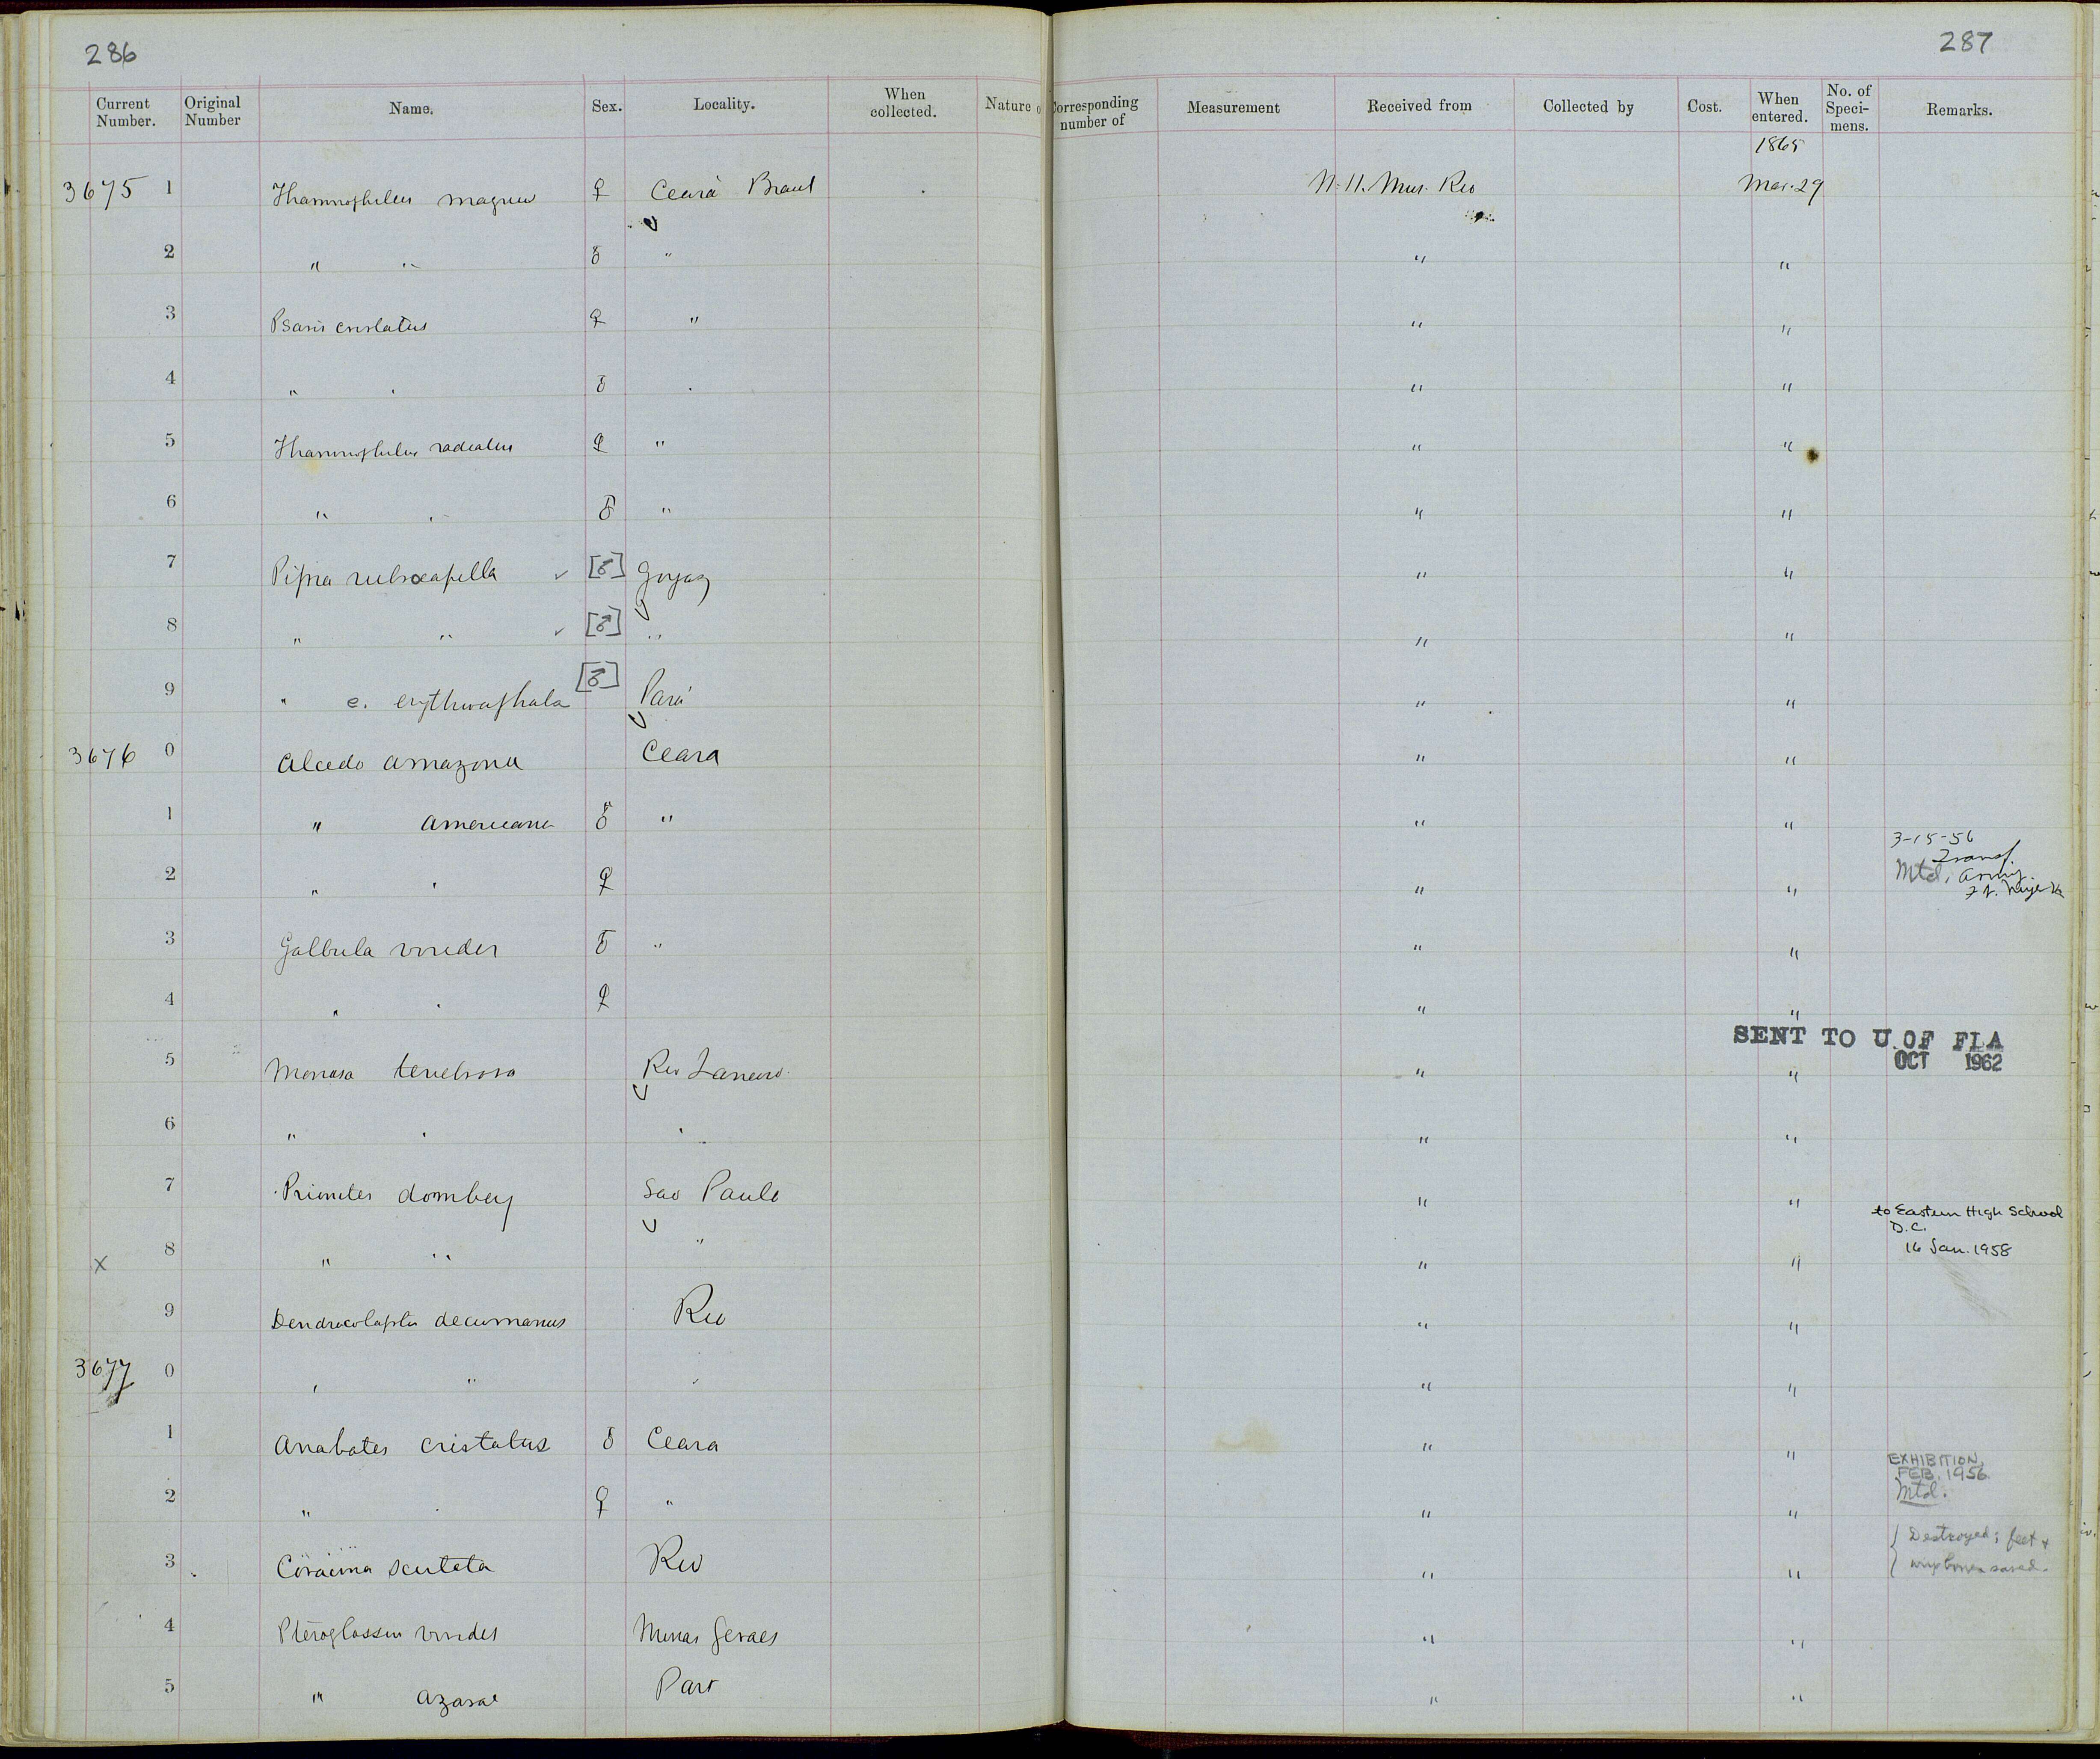 286
287
Current Number. Original Number Name. Sex. Locality. When collected. Nature o Corresponding number of Measurement Received from Collected by Cost. When entered. No. of Speci- mens. Remarks.
1865
3675 1 Thamnophilus magnus ♀ Ceará Brazil N. H. Mus. Rio Mar. 29
2 " " ♂ " " "
3 Psaris cristatus ♀ " " "
4 " " ♂ " " "
5 Thamnophilus radiatus ♀ " " "
6 " " ♂ " " "
7 Pipra rubrocapilla ✓ [♂] Goyaz " "
8 " " ✓ [♂] " " "
9 " e. erythrocephala [♂] Pará " "
3676 0 Alcedo amazona Ceara " "
1 " americana ♂ " " "
3-15-56
Transf.
2 " " ♀ " " Mtd. Army.
3 Galbula viridis ♂ " " "
4 " " ♀ " "
SENT TO U. OF FLA
OCT 1962
5 Monasa tenebrosa Rio Janeiro " "
6 " " " " "
7 Prionites dombey Sao Paulo " "
to Eastern High School
D.C.
16 Jan. 1958
X 8 " " " " "
9 Dendrocolaptes decumanus Rio " "
3677 0 " " " " "
1 Anabates cristatus ♂ Ceara " "
EXHIBITION,
FEB. 1956
Mtd.
2 " " ♀ " " "
Destroyed; feet +
saved.
3 Coracina scutata Rio " "
4 Pteroglossus viridis Minas Geraes " "
5 " azarae Para " "